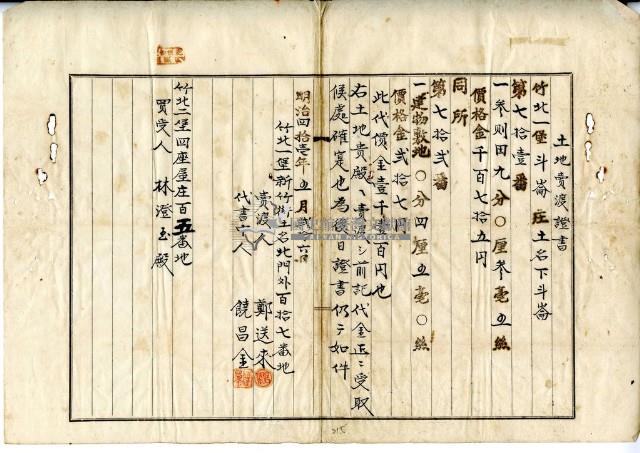 土地賣渡證書
竹北一堡斗崙庄土名下斗崙
第七拾壹番
一參則田九分〇厘參毫五絲
價格金千百七拾五円
同所
第七拾弍番
一建物敷地〇分四厘五毫〇絲
價格金弍拾七
此代價金壹千壹百円也
右土地貴殿ヘ賣渡シ前記代金正ニ受取
候處確寔也為後日證書仍テ如件
明治四拾壱年五月 六日
竹北一堡新竹街土名北門外百拾七番地
賣渡人 鄭送來
代書人 饒昌金
竹北二堡四座屋庄百五番地
買受人 林澄玉殿
315